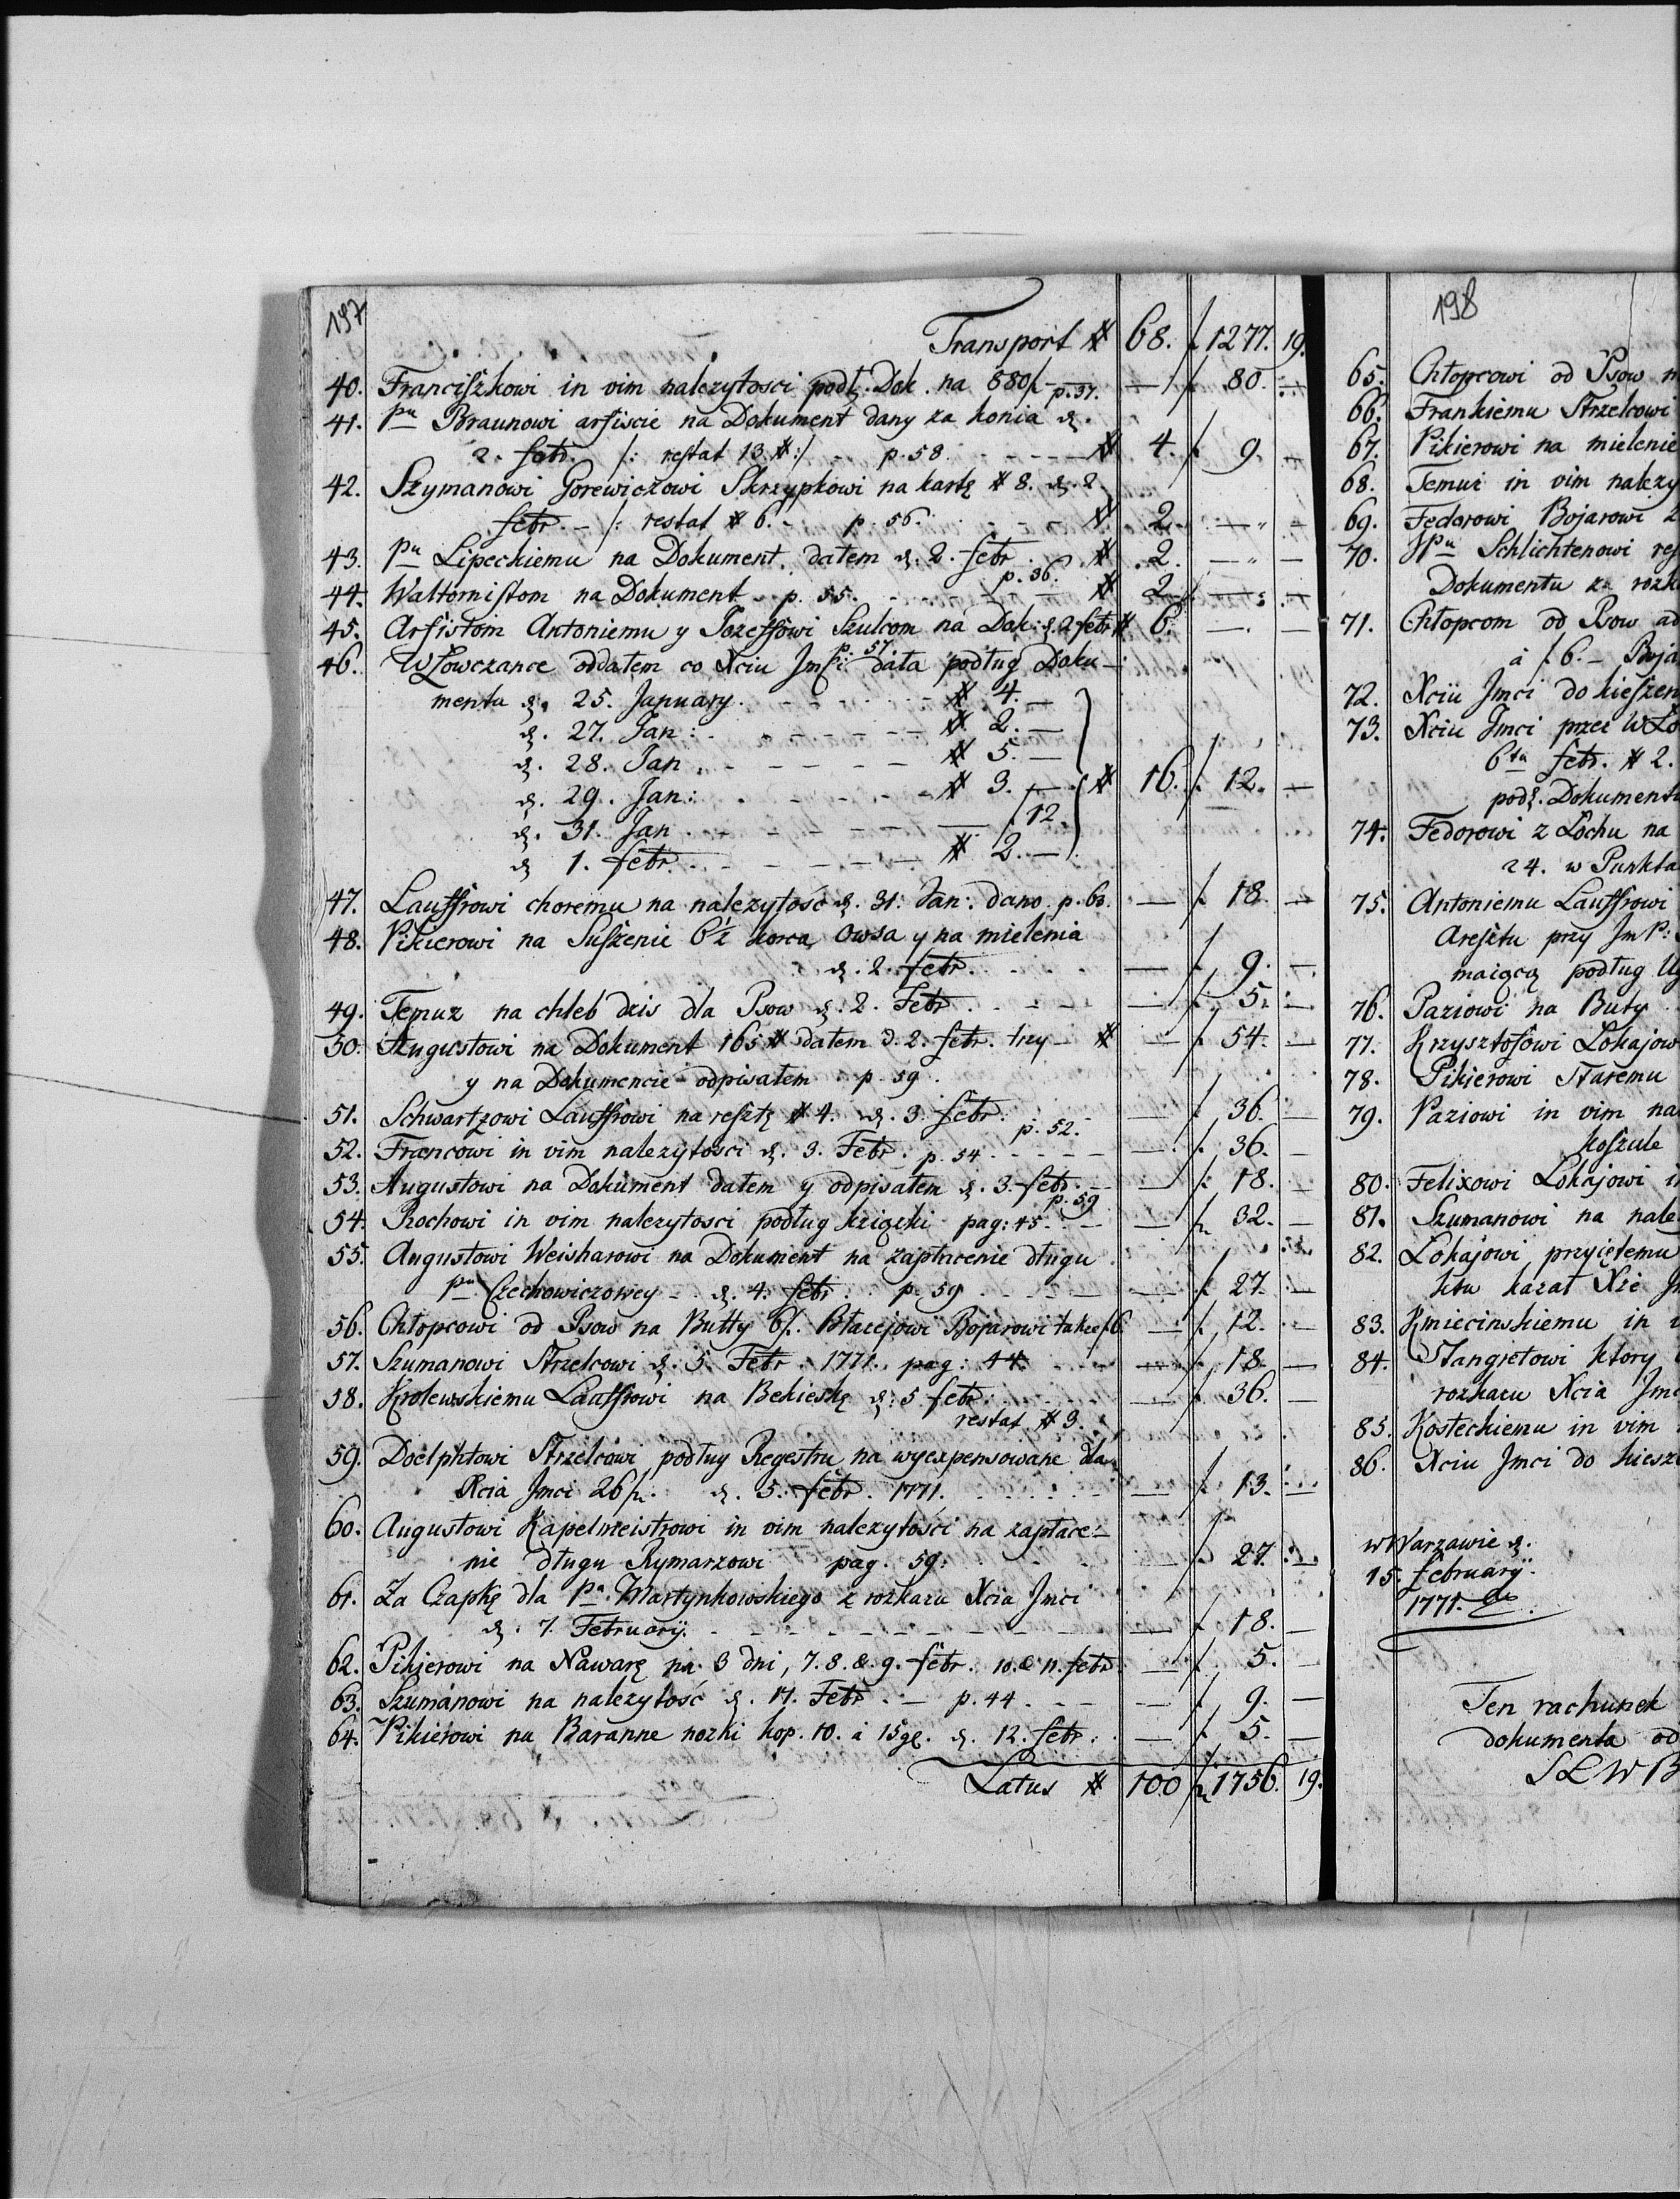 197
Transport # 68. f 1277. 19.
40. Franciszkowi in vim nalezytosci podł. Dok. na 580 f p. 37. — f 80. —
41. Pu Braunowi arfiscie na Dokument dany za konia d.
2. febr. /: restat 13 #:/ p. 58. # 4. f 9. —
42. Szymanowi Gorewiczowi Skrzypkowi na kartę # 8. d. 2
febr. — /: restat # 6. — p. 56. # 2. — —
43. Pu Lipeckiemu na Dokument datem d. 2. febr. p. 36. # 2. — —
44. Waltornistom na Dokument p. 55. # 2. — —
45. Arfistom Antoniemu y Jozeffowi Szulcom na Dok: d. 2 febr # 6. — —
46. WŁowczance oddałem co Xciu Jmci p. 57. data podług Doku-
menta d. 25. January. # 4. —
d. 27. Jan: # 2. —
d. 28. Jan. # 5. —
d. 29. Jan: # 3. — # 16. f 12. —
d. 31. Jan — f 12.
d 1. febr. # 2. —
47. Lauffrowi choremu na nalezytość d. 31. Jan: dano p. 60. — f 18. —
48. Pikierowi na Suszenie 6½ korca Owsa y na mielenia
d. 2. febr. — f 9. —
49. Temuz na chleb dzis dla Psow d. 2. Febr — f 5. —
50. Augustowi na Dokument 165 # datem d. 2. febr. trzy — # — f 54. —
y na Dokumencie odpisałem p. 59.
51. Schwartzowi Lauffrowi na resztę # 4. d. 3. febr. p. 52. — f 36. —
52. Francowi in vim nalezytosci d. 3. Febr. p. 54 — f 36. —
53. Augustowi na Dokument datem y odpisatem d. 3. febr. p. 59 — f 18. —
54. Rochowi in vim nalezytosci podług ksiązki pag: 45. — f 32. —
55. Augustowi Weisharowi na Dokument na zapłacenie długu
Pu Czechowiczowey — d. 4. febr p. 59 — f 27. —
56. Chłopcowi od Psow na Butty 6 f. Błazejowi Bojarowi takze f 6 — f 12. —
57. Szumanowi Strzelcowi d. 5. Febr. 1771. pag: 44 — f 18 —
58. Krolewskiemu Lauffrowi na Bekieskę d. 5 febr: — f 36. —
restat # 3.
59. Doelphtowi Strzelcowi podług Regestru na wyexpensowane dla
Xcia Jmci 26 f. d. 5. febr. 1771. — f 13. —
60. Augustowi Kapelmeistrowi in vim nalezytości na zapłace-
nie długu Rymarzowi pag. 59. — f 27. —
61. Za Czapkę dla Pa Martynkowskiego z rozkazu Xcia Jmci
d. 7. February. — f 18. —
62. Pikierowi na Nawarę na 3 dni, 7. 8. & 9. febr. 10. & 11. febr — f 5. —
63. Szumanowi na nalezytość d. 11. Febr. — p. 44 — f 9. —
64. Pikierowi na Baranne nozki kop. 10. à 15 g. d. 12. febr. — f 5. —
Latus # 100 f 1756. 19.
198
65. Chłopcowi od Psow n
66. Frankiemu Strzelcowi
67. Pikierowi na mielenie
68. Temuz in vim nalezy
69. Fedorowi Bojarowi z
70. JPu Schlichtenowi res
Dokumentu z rozk
71. Chłopcom od Psow ad
à f 6. — Boja
72. Xciu Jmci do kieszen
73. Xciu Jmci przez WŁo
6ta febr. # 2.
podł. Dokumentu
74. Fedorowi z Lochu na
24. w Punkta
75. Antoniemu Lauffrowi
Aresztu przy Jm P:
maiącą podług Ug
76. Paziowi na Buty
77. Krzysztofowi Lokajow
78. Pikierowi Staremu
79. Paziowi in vim na
koszule
80. Felixowi Lokajowi i
81. Szumanowi na nale
82. Lokajowi przyiętemu
kazał Xże J
83. Kmiecinskiemu in v
84. Stangretowi ktory
rozkazu Xcia Jmc
85. Kosteckiemu in vim
86. Xciu Jmci do kiesz
w Warzawie d.
15. February.
1771.
Ten rachunek
dokumenta od
SLWB